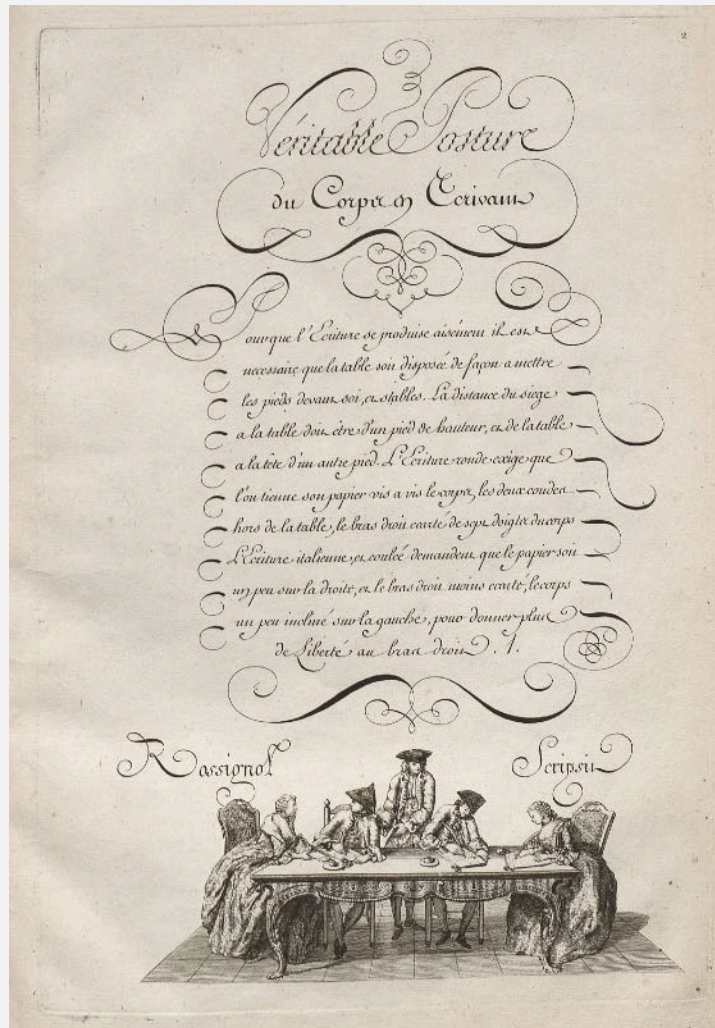 2
Véritable Posture
du Corps en Ecrivant
Pour que l'Ecriture se produise aisément il est
necessaire que la table soit disposée de façon a mettre
les pieds devant soi, et stables. La distance du siege
a la table doit être d'un pied de hauteur, et de la table
a la tête d'un autre pied. L'Ecriture ronde exige que
l'on tienne son papier vis a vis le corps, les deux coudes
hors de la table, le bras droit ecarté de sept doigts du corps
L'Ecriture italienne, et couleé demandent que le papier soit
un peu sur la droite, et le bras droit moins ecarté, le corps
un peu incliné sur la gauche, pour donner plus
de Liberté au bras droit. 1.
Rossignol Scripsit